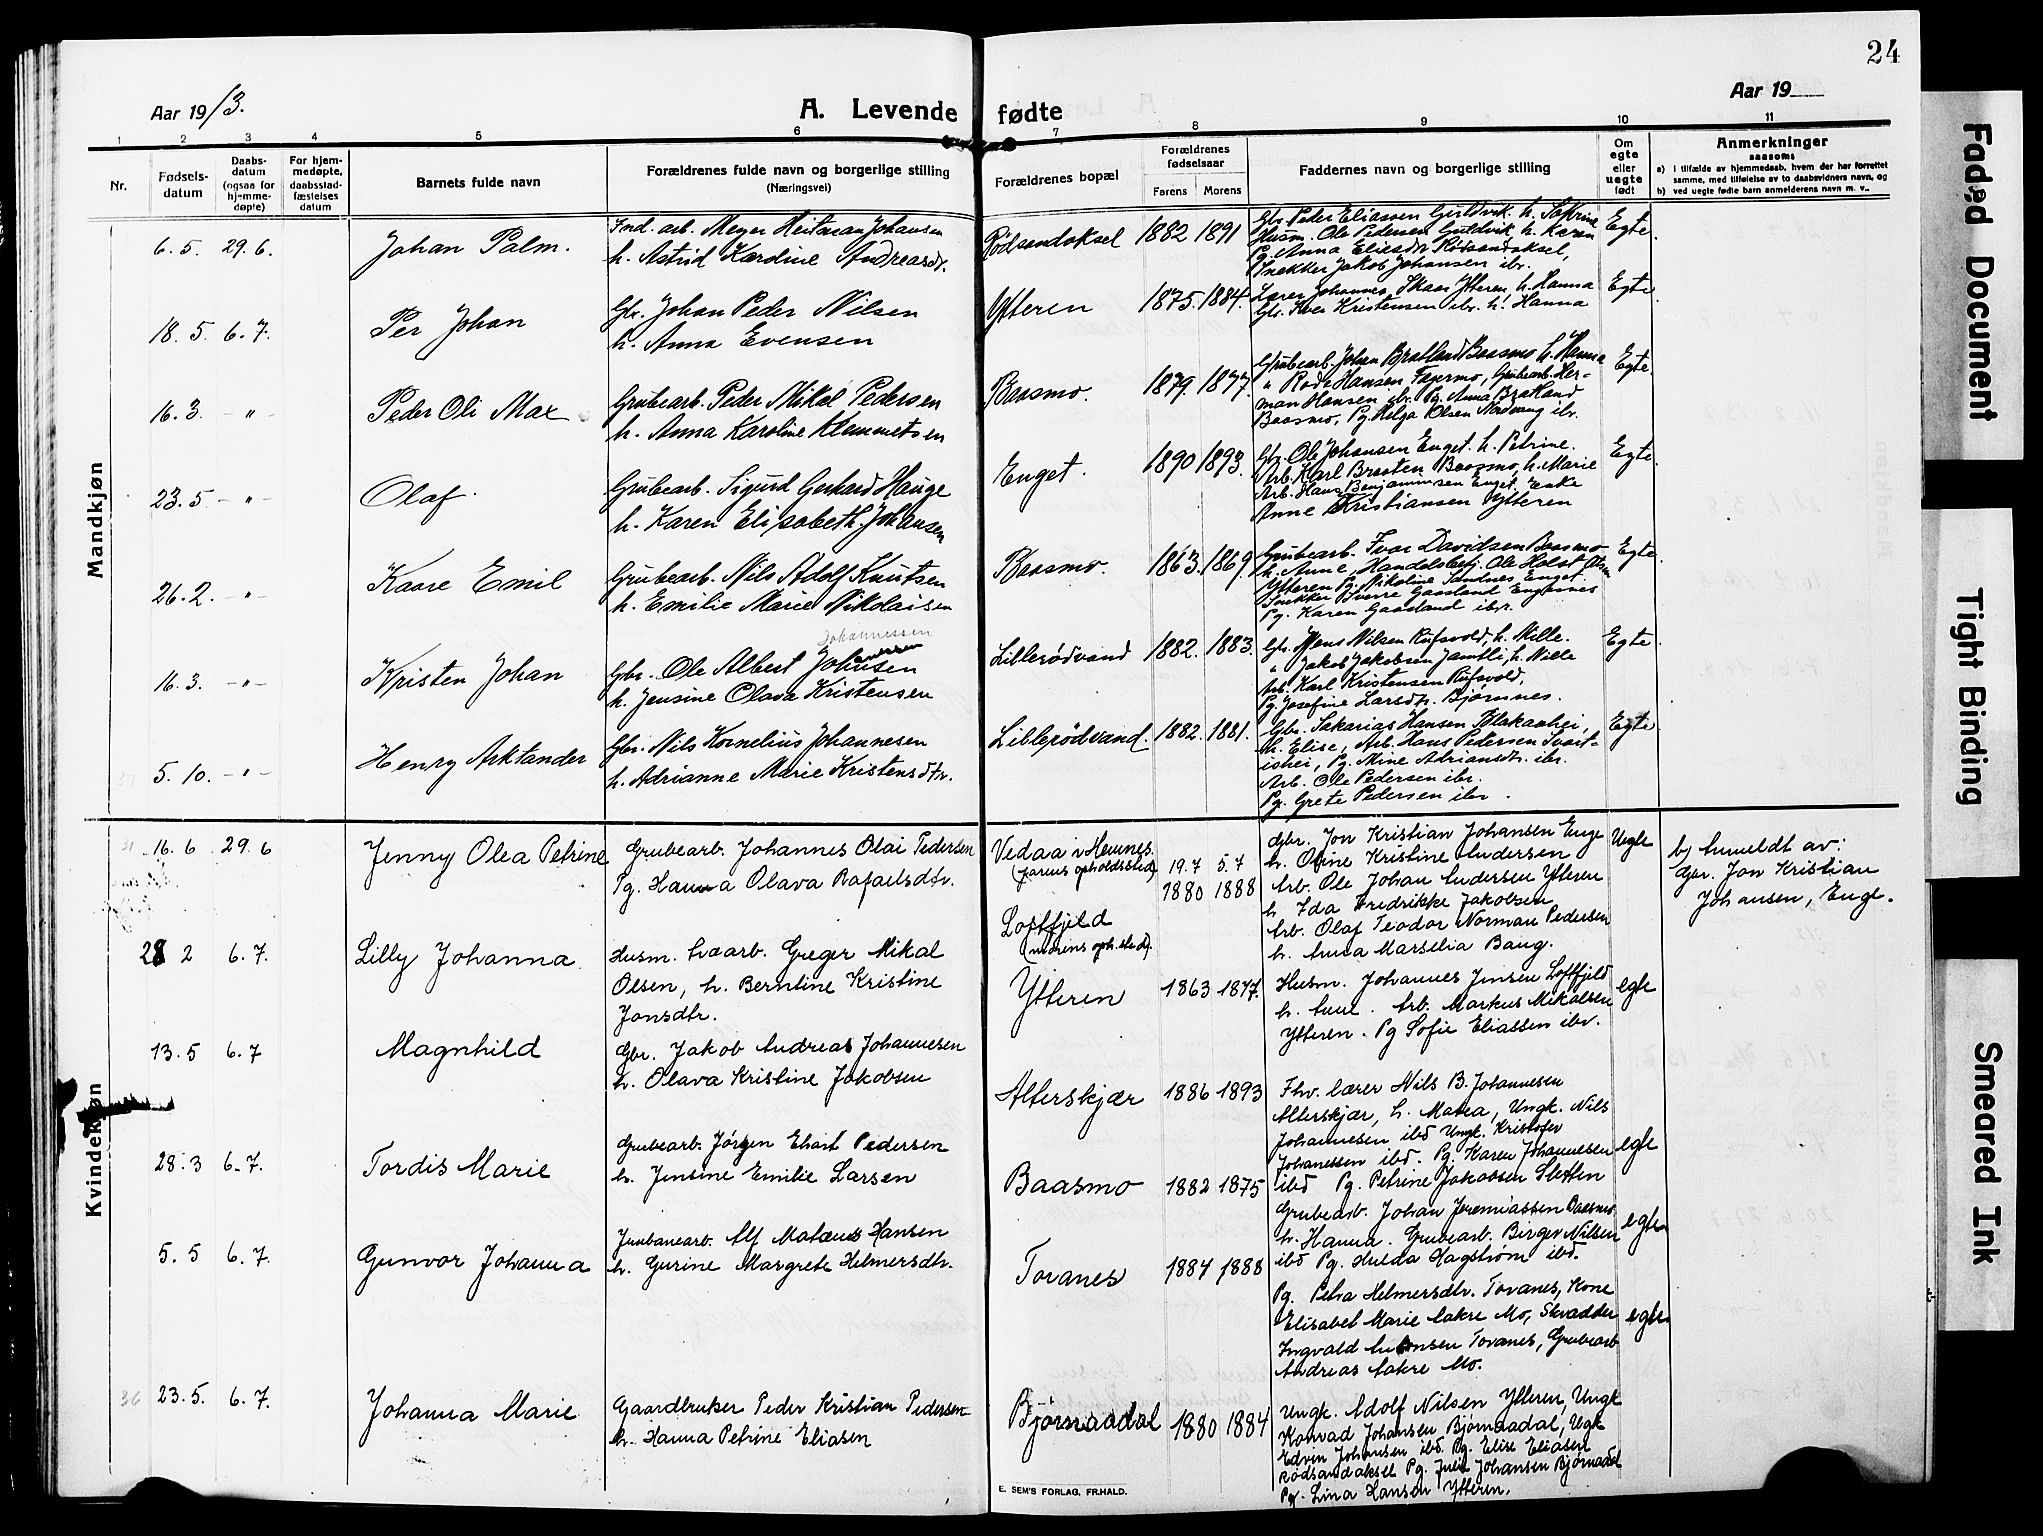 24
Aar 1913.
A. Levende fødte
Aar 19
1 2 3 4 5 6 7 8 9 10 11
Nr.
Fødsels-
datum
Daabs-
datum
(ogsaa for
hjemme-
døpte)
For hjem-
medøpte,
daabsstad-
fæstelses
datum
Barnets fulde navn
Forældrenes fulde navn og borgerlige stilling
(Næringsvei)
Forældrenes bopæl
Forældrenes
fødselsaar
Farens Morens
Faddernes navn og borgerlige stilling
Om
egte
eller
uegte
født
Anmerkninger
saasom:
a) i tilfælde av hjemmedaab, hvem der har forrettet
samme, med tilføielse av to daabsvidners navn, og
b) ved uegte fødte barn anmelderens navn m. v.
Mandkjøn
6. 5. 29. 6. Johan Palm.
Ind. arb. Meyer Heitman Johansen
h. Astrid Kardine Andreasdr.
Rødsandaksel 1882 1891
Gbr. Peder Eliassen Guldvik. h. Sakrine
Husm. Ole Pedersen Guldvik, h. Karen
Pg. Anna Eliesdr Rødsandaksel,
Snekker Jakob Johansen ibr.
Egte.
18. 5. 6. 7. Per Johan
Gbr. Johan Peder Nilsen
h. Anna Evensen
Ytteren 1875. 1884.
Lærer Johannes Skaar Ytteren, h. Hanna
Gbr. Iver Kristensen ibr. h. Hanna
Egte.
16. 3. -"- Peder Oli Max
Grubearb. Peder Mikal Pedersen
h. Anna Karoline Klemmetsen
Baasmo. 1879. 1877.
Grubearb. Johan Bratland Baasmo h. Hanna
" Rode Hansen Fagermo, Grubearb. Her-
man Hansen ibr. Pg. Anna Bratland
Baasmo, Pg. Helga Olsen Nordvang ibr.
Egte.
23. 5. -"- Olaf.
Grubearb. Sigurd Gerhard Hauge
h. Karen Elisabeth Johansen
Enget. 1890 1893.
Gbr. Ole Johansen Enget. h. Petrine.
Arb. Karl Braaten Baasmo, h. Marie
Arb. Hans Benjaminsen Enget, Enke
Anne Kristiansen Ytteren
Egte.
26. 2. -"- Kaare Emil
Grubearb. Nils Adolf Knutsen
h. Emilie Marie Nikolaisen
Baasmo. 1863. 1869.
Grubearb. Ivar Davidsen Baasmo
h. Anne, Handelsbetj. Ole Holst Olsen
Ytteren Pg. Nikoline Sandnes Enget.
Snekker Sverre Gaasland Engesnes
Pg. Karen Gaasland ibr.
Egte.
16. 3. -"- Kristen Johan
Johannessen
Gbr. Ole Albert Johnsen
h. Jensine Olava Kristensen
Lillerødvand 1882. 1883.
Gbr. Mons Nilsen Rufsvold, h. Mille.
" Jakob Jakobsen Jamtli, h. Nille
Arb. Karl Kristensen Rufsvold,
Pg. Josefine Larsdtr. Bjørnnes.
Egte.
5. 10. -"- Henry Arktander
Gbr. Nils Kornelius Johannesen
h. Adrianne Marie Kristensdtr.
Lillerødvand. 1882. 1881.
Gbr. Sakarias Hansen Blakaahei,
h. Elise, Arb. Hans Pedersen Svart-
ishei, Pg. Mine Adriansdtr. ibr.
Arb. Ole Pedersen ibr.
Pg. Grete Pedersen ibr.
Egte.
Kvindekjøn
31 16. 6 29. 6 Jenny Olea Petrine
Grubearb. Johannes Olai Pedersen
Pg. Hanna Olava Rafaelsdtr.
Vedaa i Hemnes.
(farens opholdssted)
Loftfjeld
(morens oph.sted).
19.7 5.7
1880 1888
Gbr. Jon Kristian Johansen Enge
h. Oline Kristine Andersen
Arb. Ole Johan Andersen Ytteren
h. Ida Fredrikke Jakobsen
Arb. Olaf Teodor Norman Pedersen
h. Anna Marselia Baug.
Uegte
b) Anmeldt av:
Gbr. Jon Kristian
Johansen, Enge.
28 2 6. 7. Lilly Johanna
Husm. Graarb. Greger Mikal
Olsen, h. Berntine Kristine
Jonsdtr.
Ytteren 1863 1877.
Husm. Johannes Jensen Loftfjeld
h. Anne. Arb. Markus Mikalsen
Ytteren. Pg Sofie Eliassen ibr.
egte
13. 5 6. 7 Magnhild
Gbr. Jakob Andreas Johannesen
h. Olava Kristine Jakobsen
Alterskjær 1886 1893
Fhv. lærer Nils B. Johannesen
Alterskjær, h. Matea, Ungk. Nils
Johannesen ibd Ungk. Kristofer
Johanessen ibd. Pg. Karen Johannesen
ibd Pg. Petrine Jakobsen Sletten
egte
28. 3 6. 7. Tordis Marie
Grubearb. Jørgen Ehart Pedersen
h. Jensine Emilie Larsen
Baasmo 1882 1875
Grubearb. Johan Jeremiassen Baasmo
h. Hanna. Grubearb. Birger Nilsen
ibd Pg. Hulda Hagstrøm ibd.
egte
5. 5 6. 7. Gunvor Johanna
Jernbanearb. Alf Mateus Hansen
h. Gurine Margrete Helmersdtr.
Toranes 1884 1888
Pg. Petra Helmersdtr. Toranes, Kone
Elisabet Marie Aakre Mo, Skrædder
Ingvald Antonsen Toranes, Grubearb
Andreas Aakre Mo.
egte
36 23. 5. 6. 7. Johanna Marie
Gaardbruker Peder Kristian Pedersen
h. Hanna Petrine Eliasen
Bjørnaadal 1880 1884
Ungk. Adolf Nilsen Ytteren, Ungk
Konrad Johansen Bjørnaadal, Ugk
Edvin Johansen ibd. Pg. Elise Eliasen
Rødsandaksel Pg. Julie Johansen Bjørnaadal
Pg. Lina Hansen Ytteren.
E. SEM'S FORLAG, FR.HALD.
Faded Document
Tight Binding
Smeared Ink